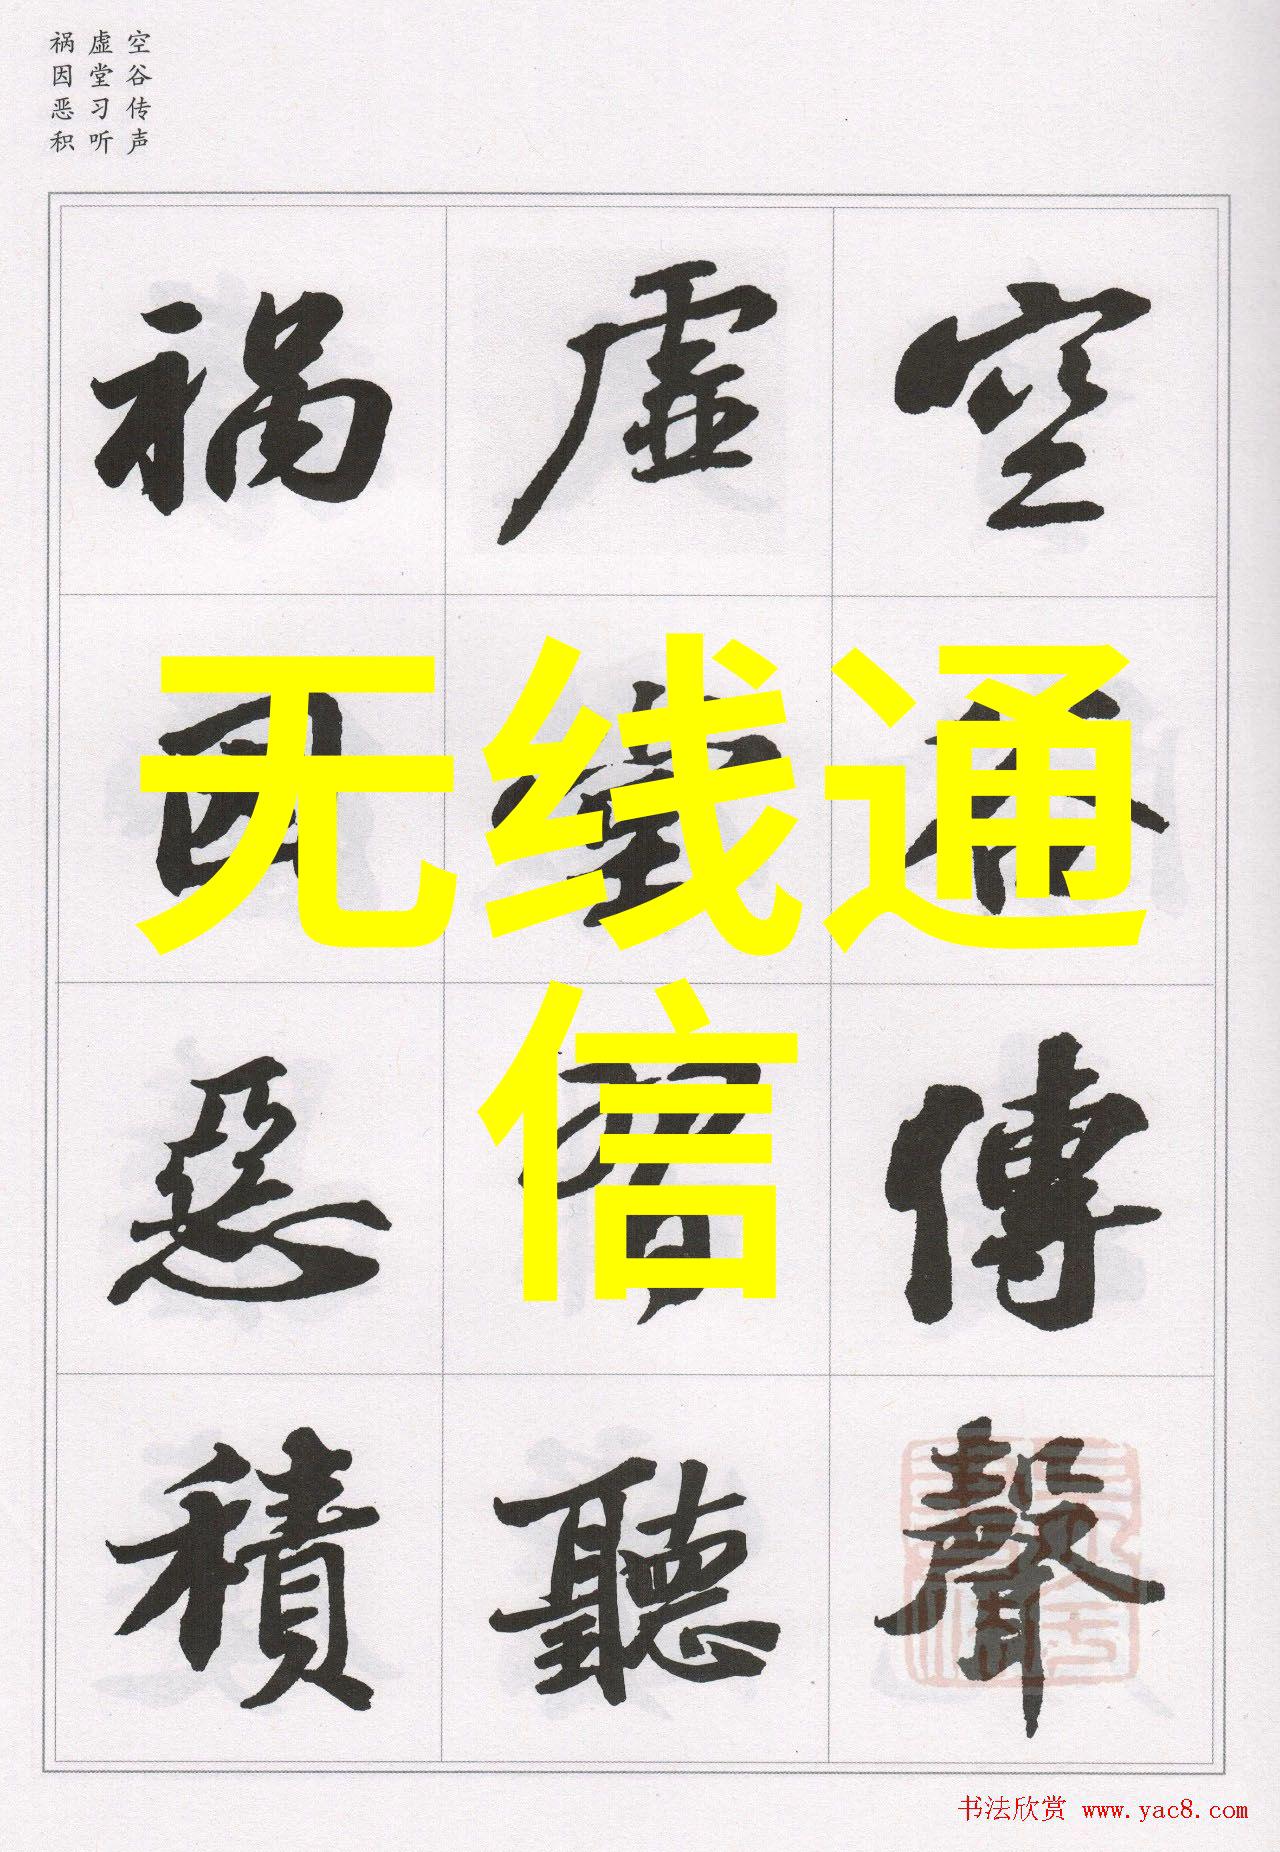 空谷传声
虚堂习听
祸因恶积
空谷傳聲
虚堂習聽
禍因惡積
无线通
信
书法欣赏 www.yac8.com